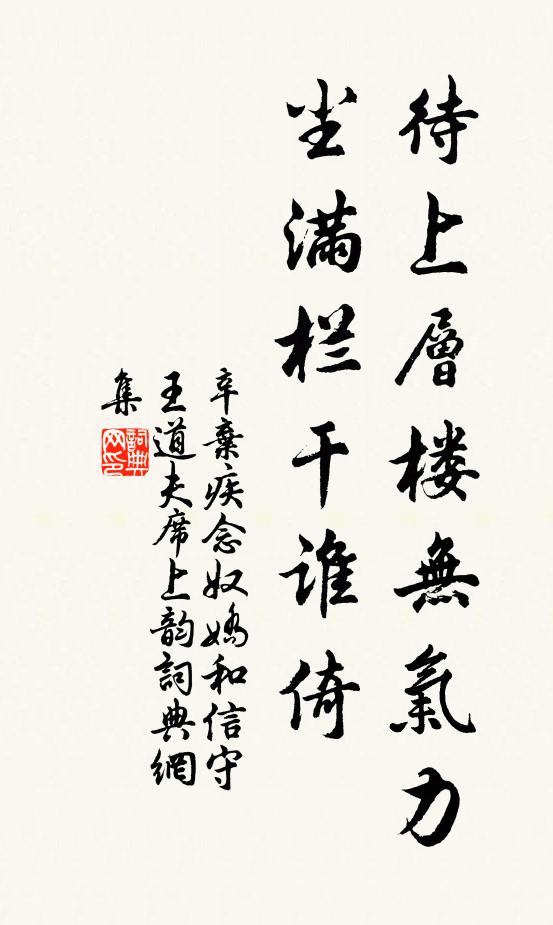 待上層楼無氣力
尘滿栏干谁倚
辛棄疾念奴嬌和信守
王道夫席上韵詞典網
集
詞典
网印